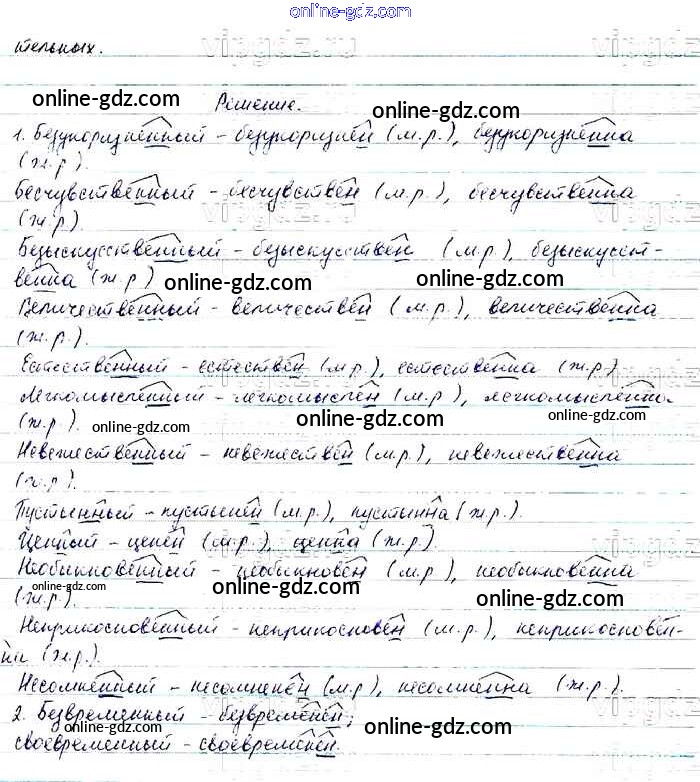 online-gdz.com
тельных.
Решение.
online-gdz.com online-gdz.com
1. Безукоризненный - безукоризнен (м.р.), безукоризненна
(ж.р).
Бесчувственный - бесчувствен (м.р.), бесчувственна
(ж.р)
Безыскусственный - безыскусствен (м.р.), безыскусст-
венна (ж.р) online-gdz.com online-gdz.com
Величественный - величествен (м.р.), величественна
(ж.р.).
Естественный - естествен (м.р.), естественна (ж.р)
Легкомысленный - легкомыслен (м.р), легкомысленна
(ж.р). online-gdz.com online-gdz.com online-gdz.com
Невежественный - невежествен (м.р.), невежественна
(ж.р).
Пустынный - пустынен (м.р.), пустынна (ж.р.).
Ценный - ценен (м.р.), ценна (ж.р).
Необыкновенный - необыкновен (м.р.), необыкновенна
online-gdz.com
(ж.р). online-gdz.com online-gdz.com
Неприкосновенный - неприкосновен (м.р.), неприкосновен-
на (ж.р.).
Несомненный - несомненен (м.р), несомненна (ж.р).
2. Безвременный - безвременен;
своевременный - своевременен.
online-gdz.com online-gdz.com